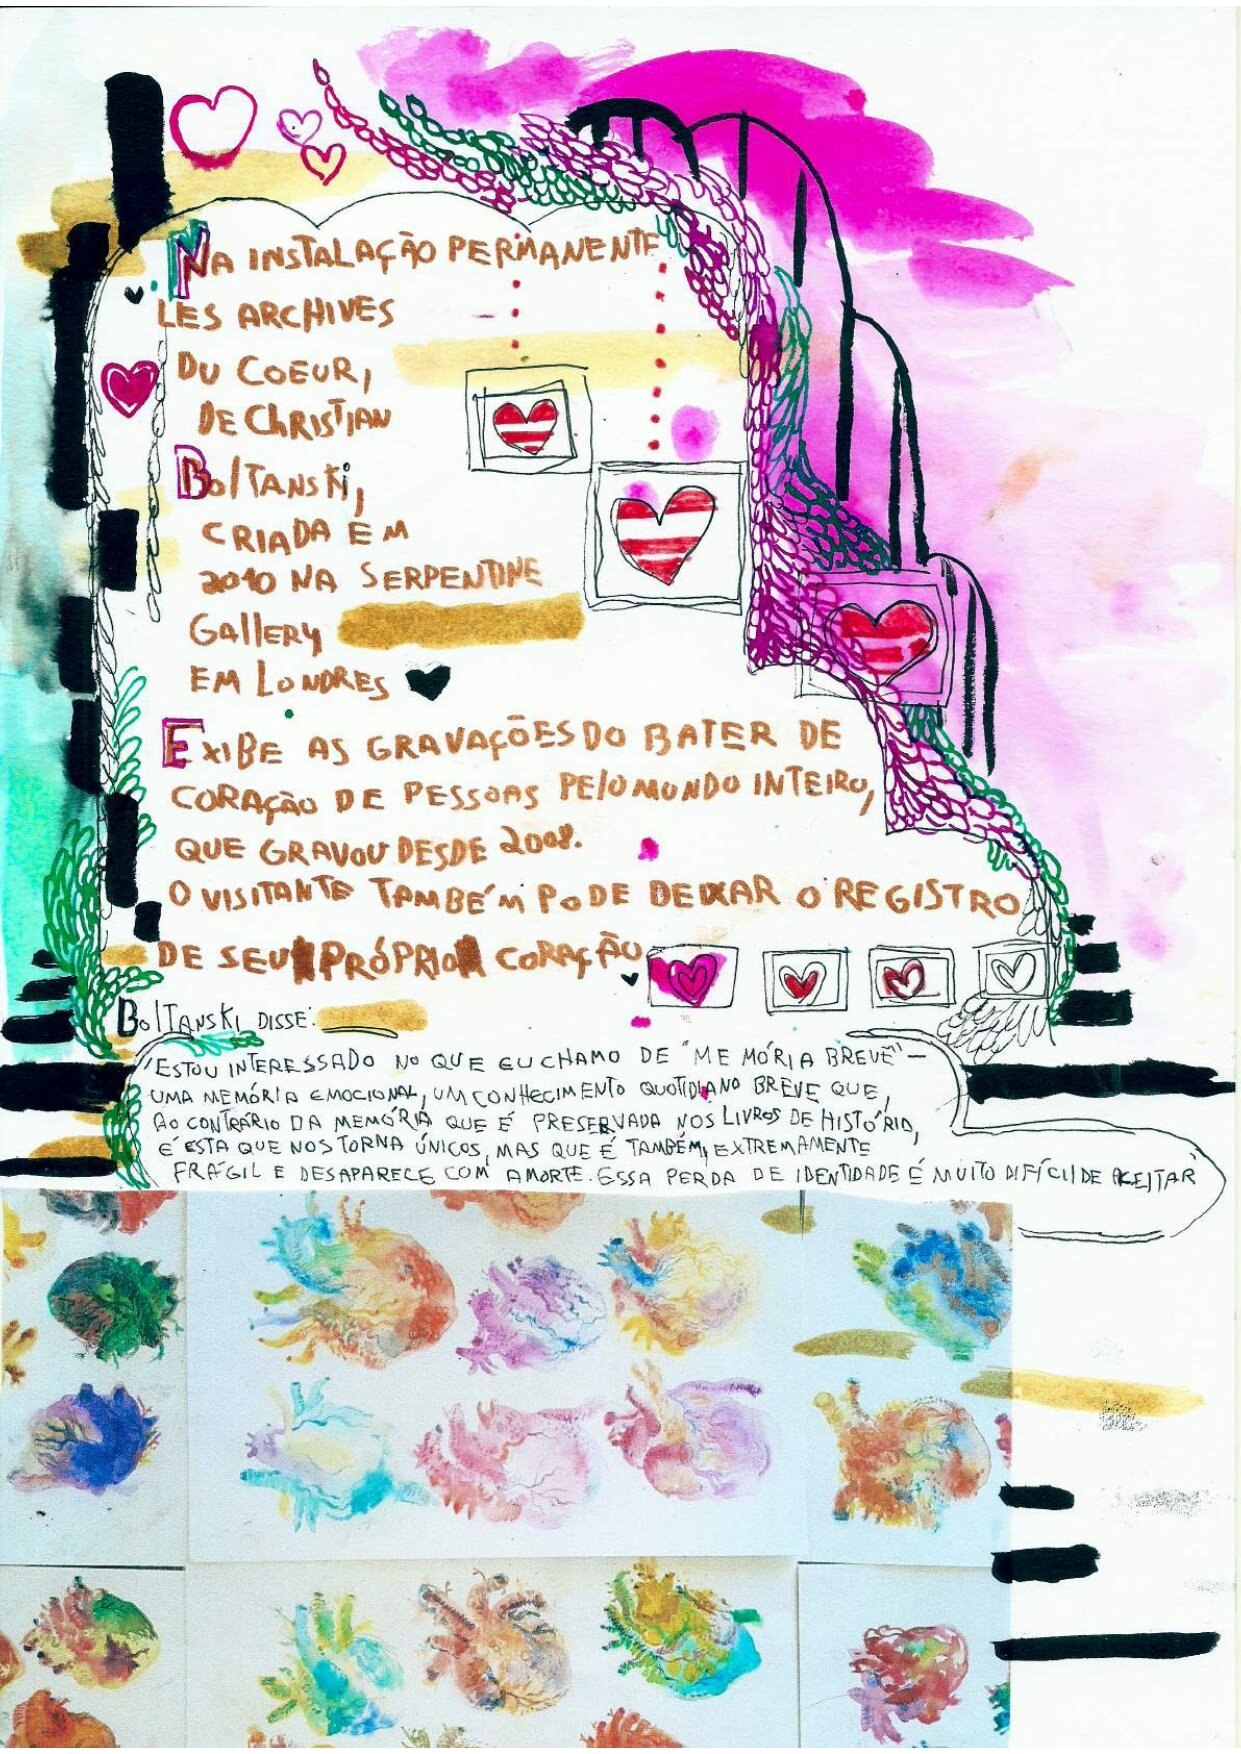 NA INSTALAÇÃO PERMANENTE
LES ARCHIVES
DU COEUR,
DE CHRISTIAN
BOLTANSKI,
CRIADA EM
2010 NA SERPENTINE
GALLERY
EM LONDRES
EXIBE AS GRAVAÇÕES DO BATER DE
CORAÇÃO DE PESSOAS PELO MUNDO INTEIRO,
QUE GRAVOU DESDE 2008.
O VISITANTE TAMBÉM PODE DEIXAR O REGISTRO
DE SEU PRÓPRIO CORAÇÃO
BOLTANSKI DISSE:
"ESTOU INTERESSADO NO QUE EU CHAMO DE "MEMÓRIA BREVE" —
UMA MEMÓRIA EMOCIONAL, UM CONHECIMENTO QUOTIDIANO BREVE QUE,
AO CONTRÁRIO DA MEMÓRIA QUE É PRESERVADA NOS LIVROS DE HISTÓRIA,
É ESTA QUE NOS TORNA ÚNICOS, MAS QUE É TAMBÉM, EXTREMAMENTE
FRÁGIL E DESAPARECE COM A MORTE. ESSA PERDA DE IDENTIDADE É MUITO DIFÍCIL DE ACEITAR"